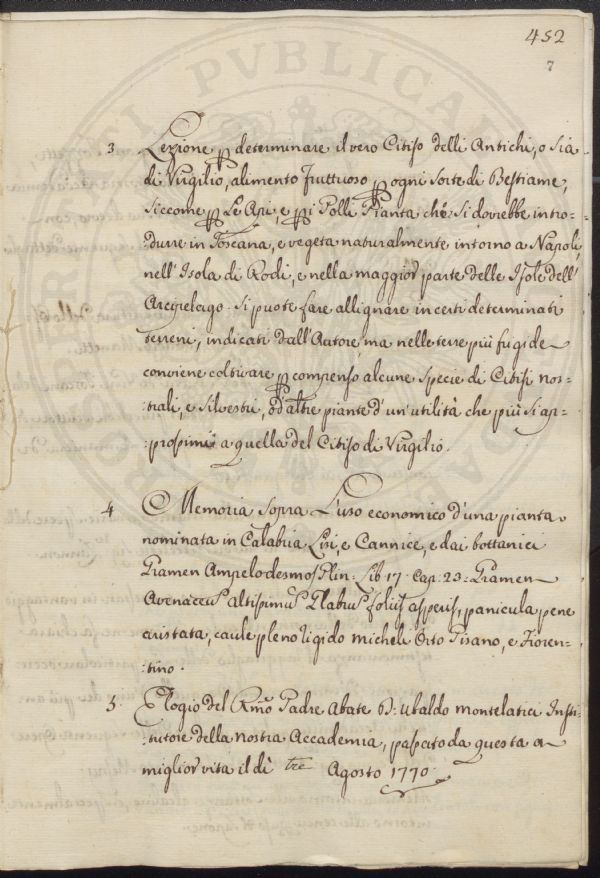 452
7
3 Lezione p determinare il vero Citiso delli Antichi, o sia
di Virgilio, alimento fruttuoso p ogni sorte di Bestiame,
siccome p Le Api, e p i Polli Pianta che si dovrebbe intro=
:durre in Toscana, e vegeta naturalmente intorno a Napoli,
nell' Isola di Rodi, e nella maggior parte delle Isole dell'
Arcipelago. Si puote fare allignare in certi determinati
terreni, indicati dall'Autore, ma nelle terre più frigide
conviene coltivare p compenso alcune specie di Citisi nos=
:trali, e silvestri, od altre piante d'un'utilità che più si ap=
:prossimi a quella del Citiso di Virgilio.
4 Memoria sopra L'uso economico d'una pianta
nominata in Calabria Lisi, e Cannice, e dai bottanici
Gramen Ampelodesmos Plin= Lib 17. Cap. 23= Gramen
Avenaceus altissimus Glabrus foliis asperis, panicula pene
aristata, caule pleno rigido micheli Orto Pisano, e Fioren=
:tino.
5 Elogio del Rmo Padre Abate D: Ubaldo montelatici Insti=
:tutore della nostra Accademia, passato da questa a
miglior vita il dì tre Agosto 1770.
PVBLICAE